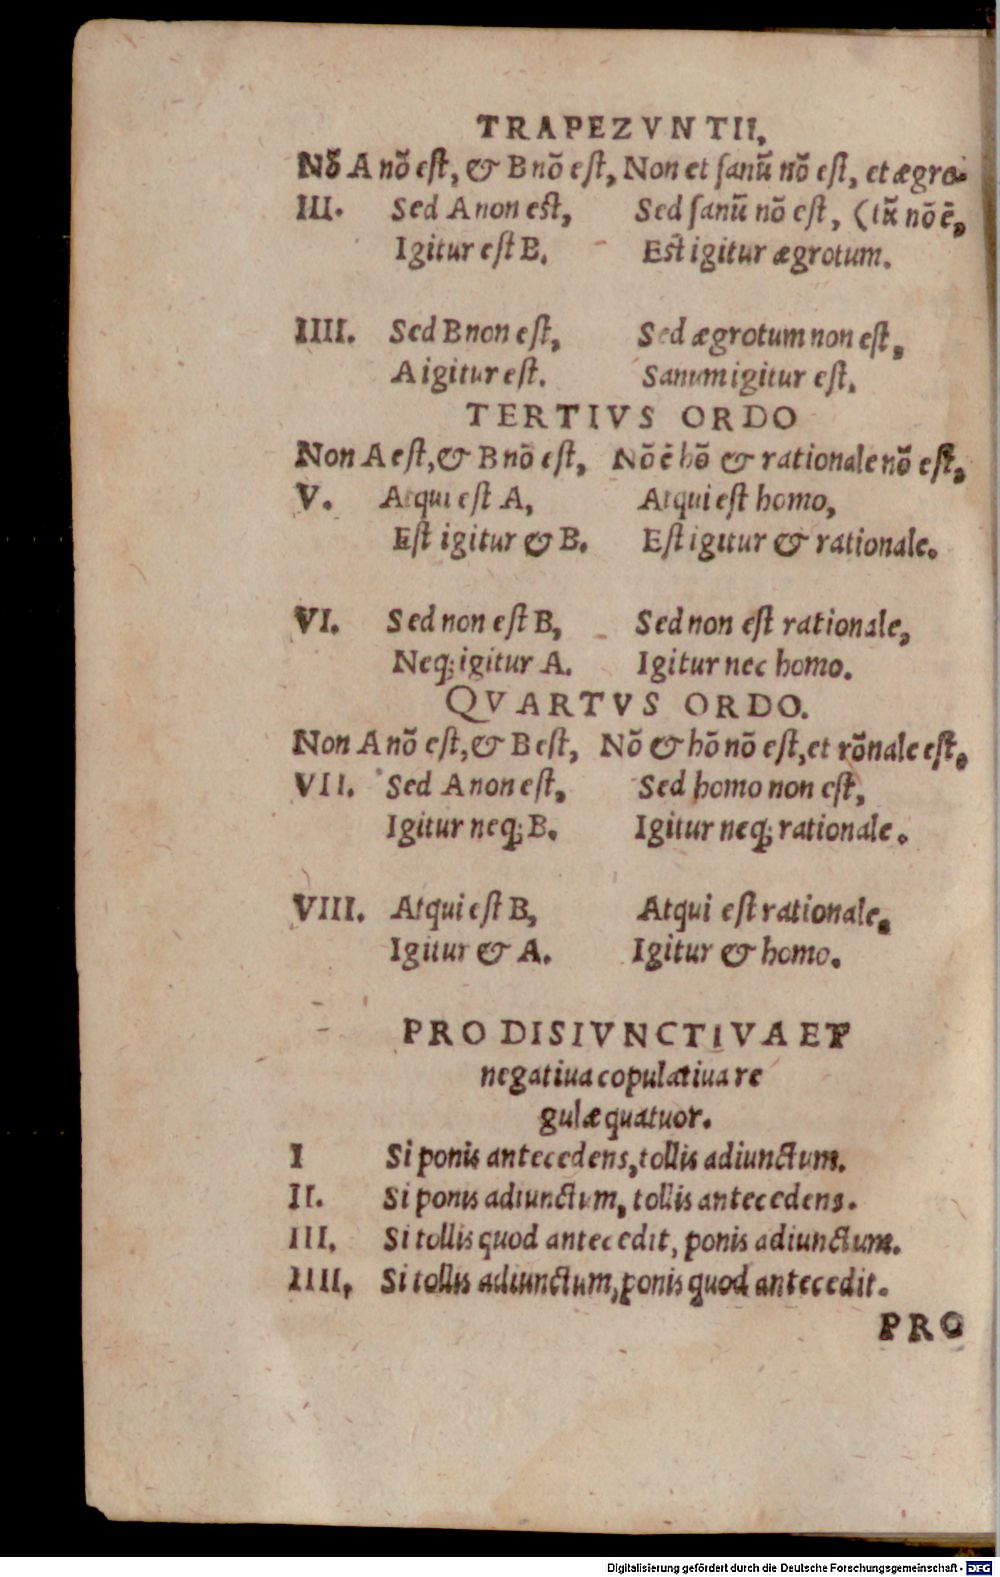 TRAPEZVNTII.
Nõ A nõ eſt, & B nõ eſt, Non et ſanũ nõ eſt, et ægro-
III. Sed A non est, Sed ſanũ nõ eſt, (tũ nõ ē,
Igitur eſt B. Est igitur ægrotum.
IIII. Sed B non eſt, Sed ægrotum non eſt,
A igitur eſt. Sanum igitur eſt.
TERTIVS ORDO
Non A eſt, & B nõ eſt, Nõ ē hõ & rationale nõ eſt,
V. Atqui eſt A, Atqui eſt homo,
Eſt igitur & B. Eſt igitur & rationale.
VI. Sed non eſt B, Sed non eſt rationale,
Neq; igitur A. Igitur nec homo.
QVARTVS ORDO.
Non A nõ eſt, & B eſt, Nõ & hõ nõ eſt, et rõnale eſt.
VII. Sed A non eſt, Sed homo non eſt,
Igitur neq; B. Igitur neq; rationale.
VIII. Atqui eſt B, Atqui eſt rationale,
Igitur & A. Igitur & homo.
PRO DISIVNCTIVA ET
negatiua copulatiua re
gulæ quatuor.
I Si ponis antecedens, tollis adiunctum.
II. Si ponis adiunctum, tollis antecedens.
III. Si tollis quod antecedit, ponis adiunctum.
IIII. Si tollis adiunctum, ponis quod antecedit.
PRO
Digitalisierung gefördert durch die Deutsche Forschungsgemeinschaft - DFG